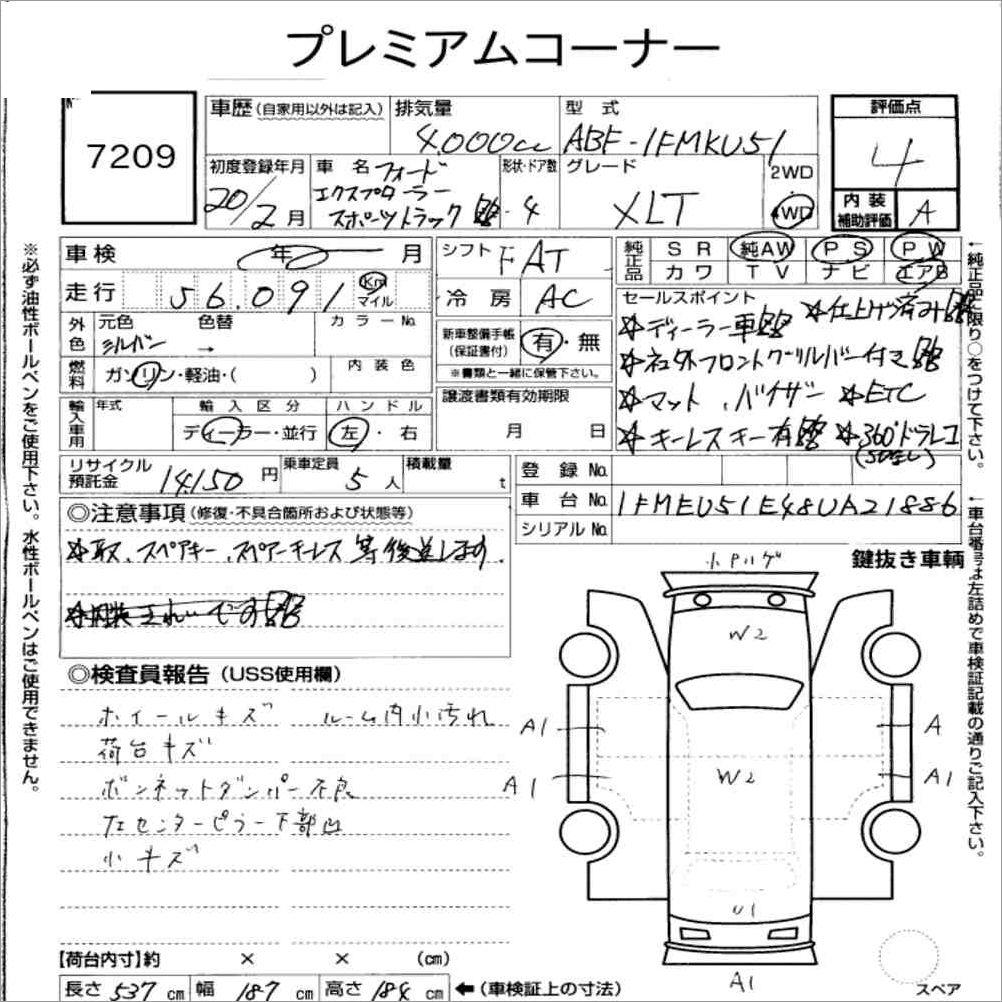 プレミアムコーナー
7209
車歴(自家用以外は記入)
排気量
4.000cc
型式
ABF-1FMKU51
評価点
4
内装補助評価
A
初度登録年月
20/2月
車名
フォード
エクスプローラー
スポーツトラック
形状・ドア数
4
グレード
XLT
2WD
4WD
車検 年 月
走行
56.091
Km
マイル
シフト
FAT
冷房
AC
純正品
SR 純AW PS PW
カワ TV ナビ エアB
外色
元色
シルバー
色替
→
カラーNo.
燃料
ガソリン・軽油・( )
内装色
新車整備手帳(保証書付)
有・無
※書類と一緒に保管下さい。
セールスポイント
☆ディーラー車 ☆仕上げ済み
☆社外フロントグリルバー付き
☆マット、バイザー ☆ETC
☆キーレスキー有 ☆360°ドラレコ
輸入車用
年式
輸入区分
ディーラー・並行
ハンドル
左・右
譲渡書類有効期限
月 日
リサイクル預託金
14,150円
乗車定員
5人
積載量
t
登録No.
車台No.
1FMEU51E48UA21886
シリアルNo.
◎注意事項(修復・不具合箇所および状態等)
☆取、スペアキー、スペアキーレス等後送します。
☆内装きれいです
鍵抜き車輌
◎検査員報告(USS使用欄)
ホイールキズ ルーム内小汚れ
荷台キズ
ボンネットダンパー不良
左センターピラー下部凹
小キズ
小Pハゲ
W2
A1
A
W2
A1
A1
U1
A1
スペア
【荷台内寸】約 × × (cm)
長さ537cm 幅187cm 高さ184cm ←(車検証上の寸法)
※必ず油性ボールペンをご使用下さい。水性ボールペンはご使用できません。
←純正品に限り○をつけて下さい。
←車台番号は左詰めで車検証記載の通りご記入下さい。